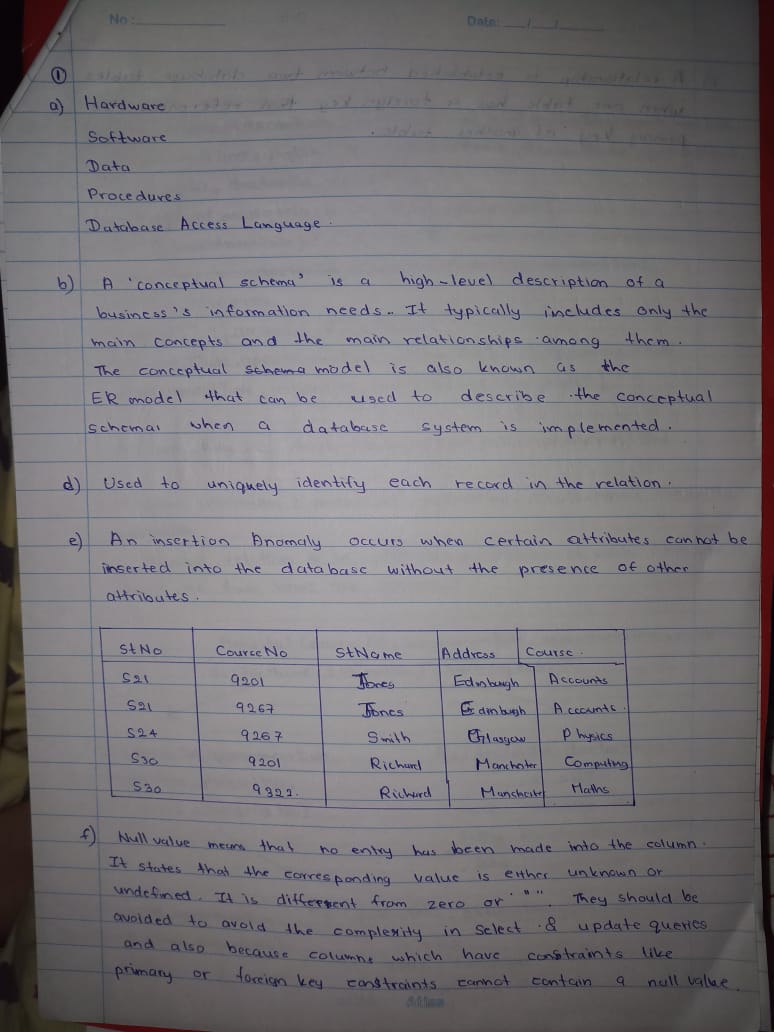 No: Date: / /
①
a) Hardware
Software
Data
Procedures
Database Access Language.
b) A 'conceptual schema' is a high-level description of a
business's information needs. It typically includes only the
main concepts and the main relationships among them.
The conceptual schema model is also known as the
ER model that can be used to describe the conceptual
schemas when a database system is implemented.
d) Used to uniquely identify each record in the relation.
e) An insertion Anomaly occurs when certain attributes cannot be
inserted into the database without the presence of other
attributes.
StNo CourceNo StName Address Course
S21 9201 Jones Edinburgh Accounts
S21 9267 Jones Edinburgh Accounts
S24 9267 Smith Glasgow Physics
S30 9201 Richard Manchster Computing
S30 9322. Richard Manchester Maths
f) Null value means that no entry has been made into the column.
It states that the corresponding value is either unknown or
undefined. It is different from zero or " ". They should be
avoided to avoid the complexity in select & update queries
and also because columns which have constraints like
primary or foreign key constraints cannot contain a null value.
Atlas